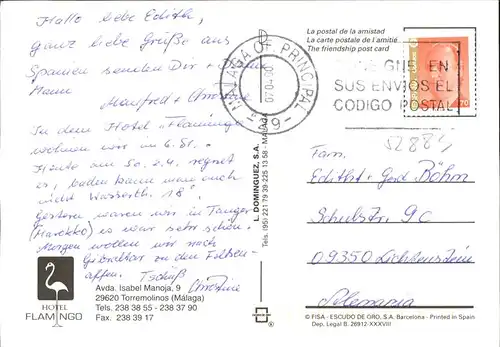 Hallo liebe Edith,
ganz liebe Grüße aus
Spanien senden Dir + Deinem
Mann
Manfred + Christine
In dem Hotel "Flamingo
wohnen wir im 6. St.
Heute am So. 2.4. regnet
es, baden kann man auch
nicht Wasserth. 18°.
Gestern waren wir in Tanger
(Marokko) es war sehr schön.
Morgen wollen wir nach
Gibraltar zu den Felsen-
affen. Tschüß
Christine
HOTEL
FLAMINGO
Avda. Isabel Manoja, 9
29620 Torremolinos (Málaga)
Tels. 238 38 55 - 238 37 90
Fax. 238 39 17
L. DOMINGUEZ, S.A.
Tels. (95) 221 79 39-225 13 58 - MALAGA
MALAGA OF. PRINCIPAL
La postal de la amistad
La carte postale de l'amitié
The friendship post card
EN
SUS ENVIOS EL
CODIGO POSTAL
70
Fam.
Edith + Gerd Böhm
Schulstr. 90
09350 Lichtenstein
Alemania
© FISA - ESCUDO DE ORO, S.A. Barcelona - Printed in Spain
Dep. Legal B. 26912-XXXVIII